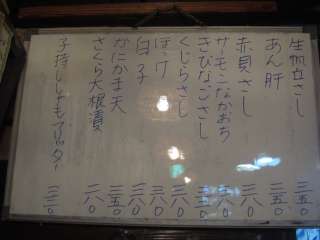 生帆立さし 三五〇
あん肝 三五〇
赤貝さし 三八〇
サーモンなかおち
きびなごさし 三五〇
くじらさし 三八〇
ほっけ 三八〇
白子 三八〇
かにかま天 三五〇
さくら大根漬 二八〇
子持ししゃもフリッター 三二〇